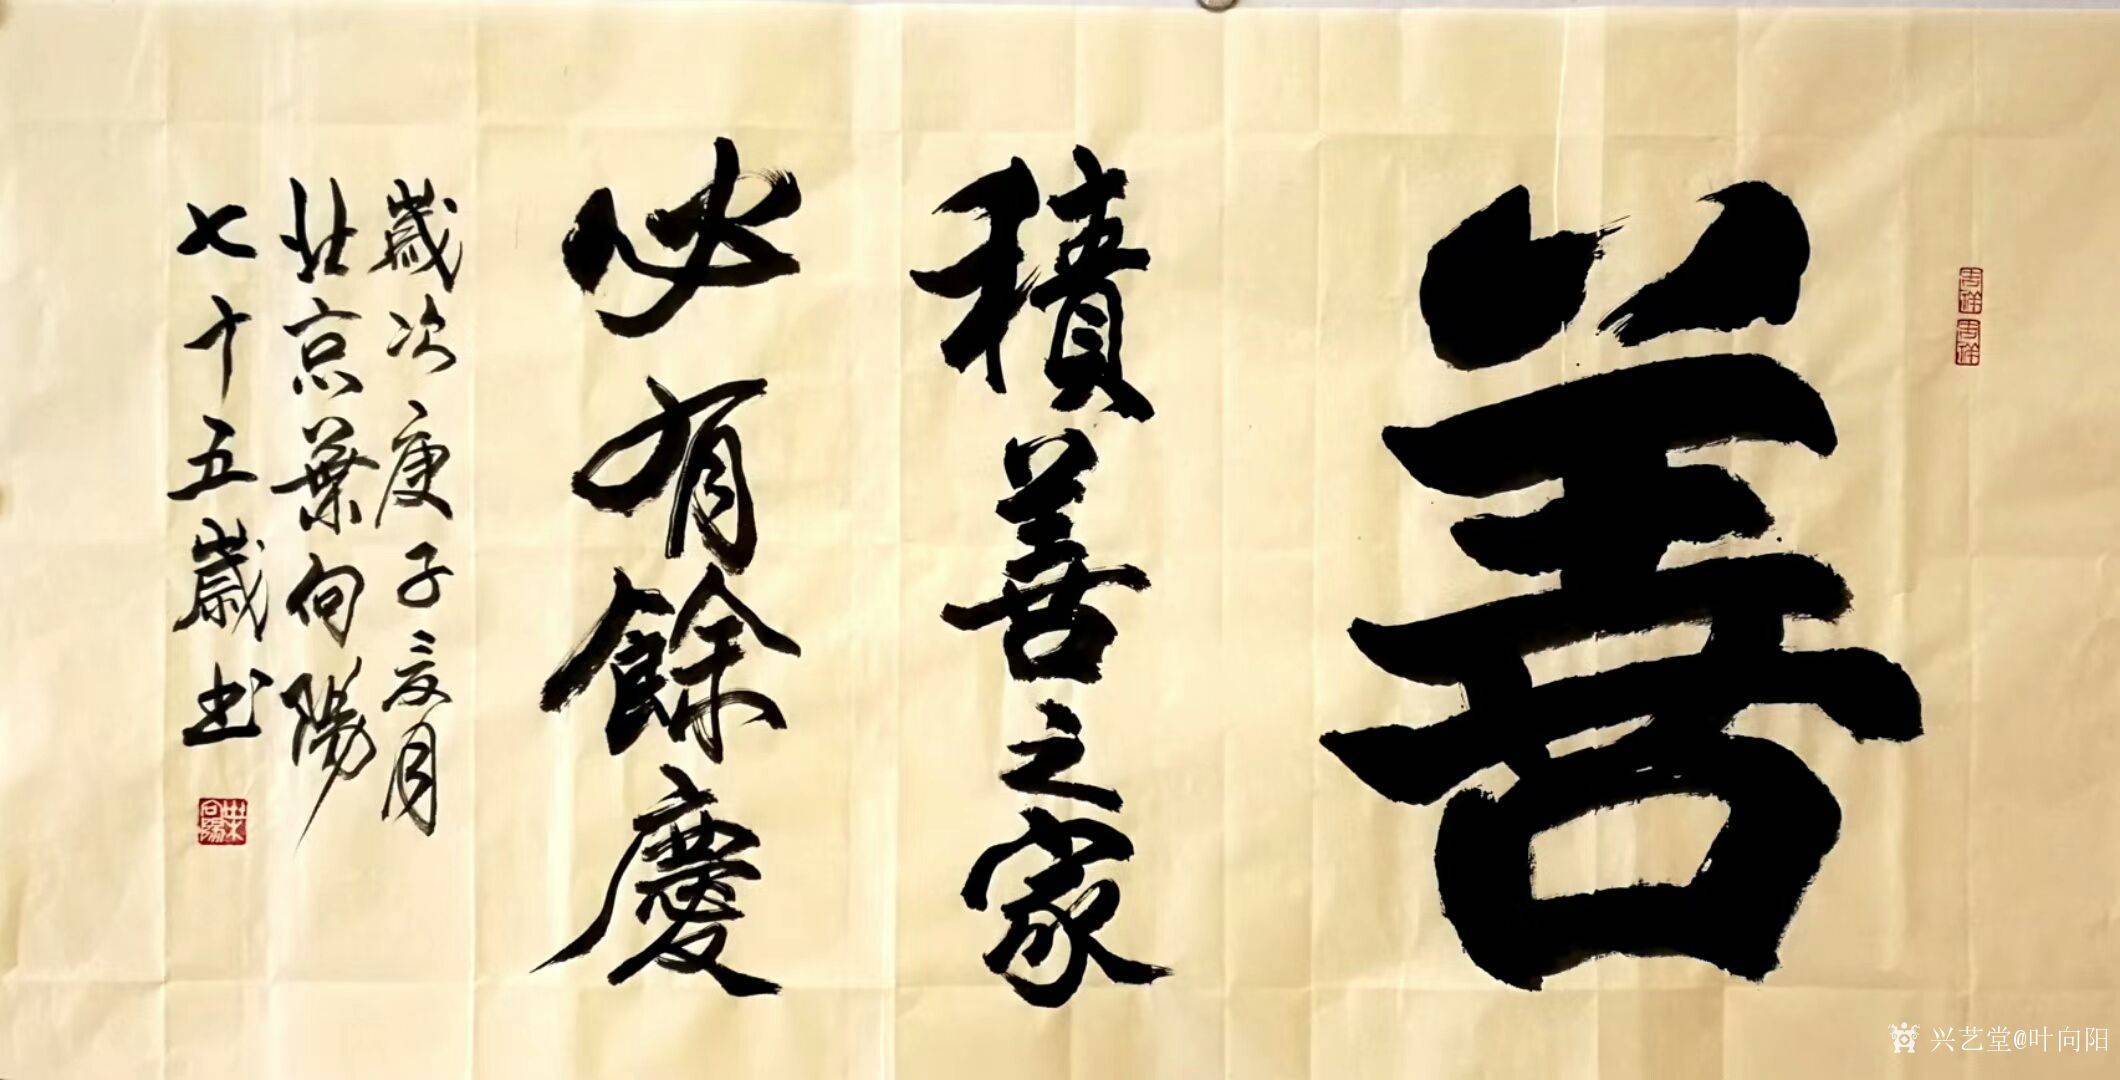 善
積善之家
必有餘慶
歲次庚子亥月
北京葉向陽
七十五歲书
葉向陽
兴艺堂@叶向阳